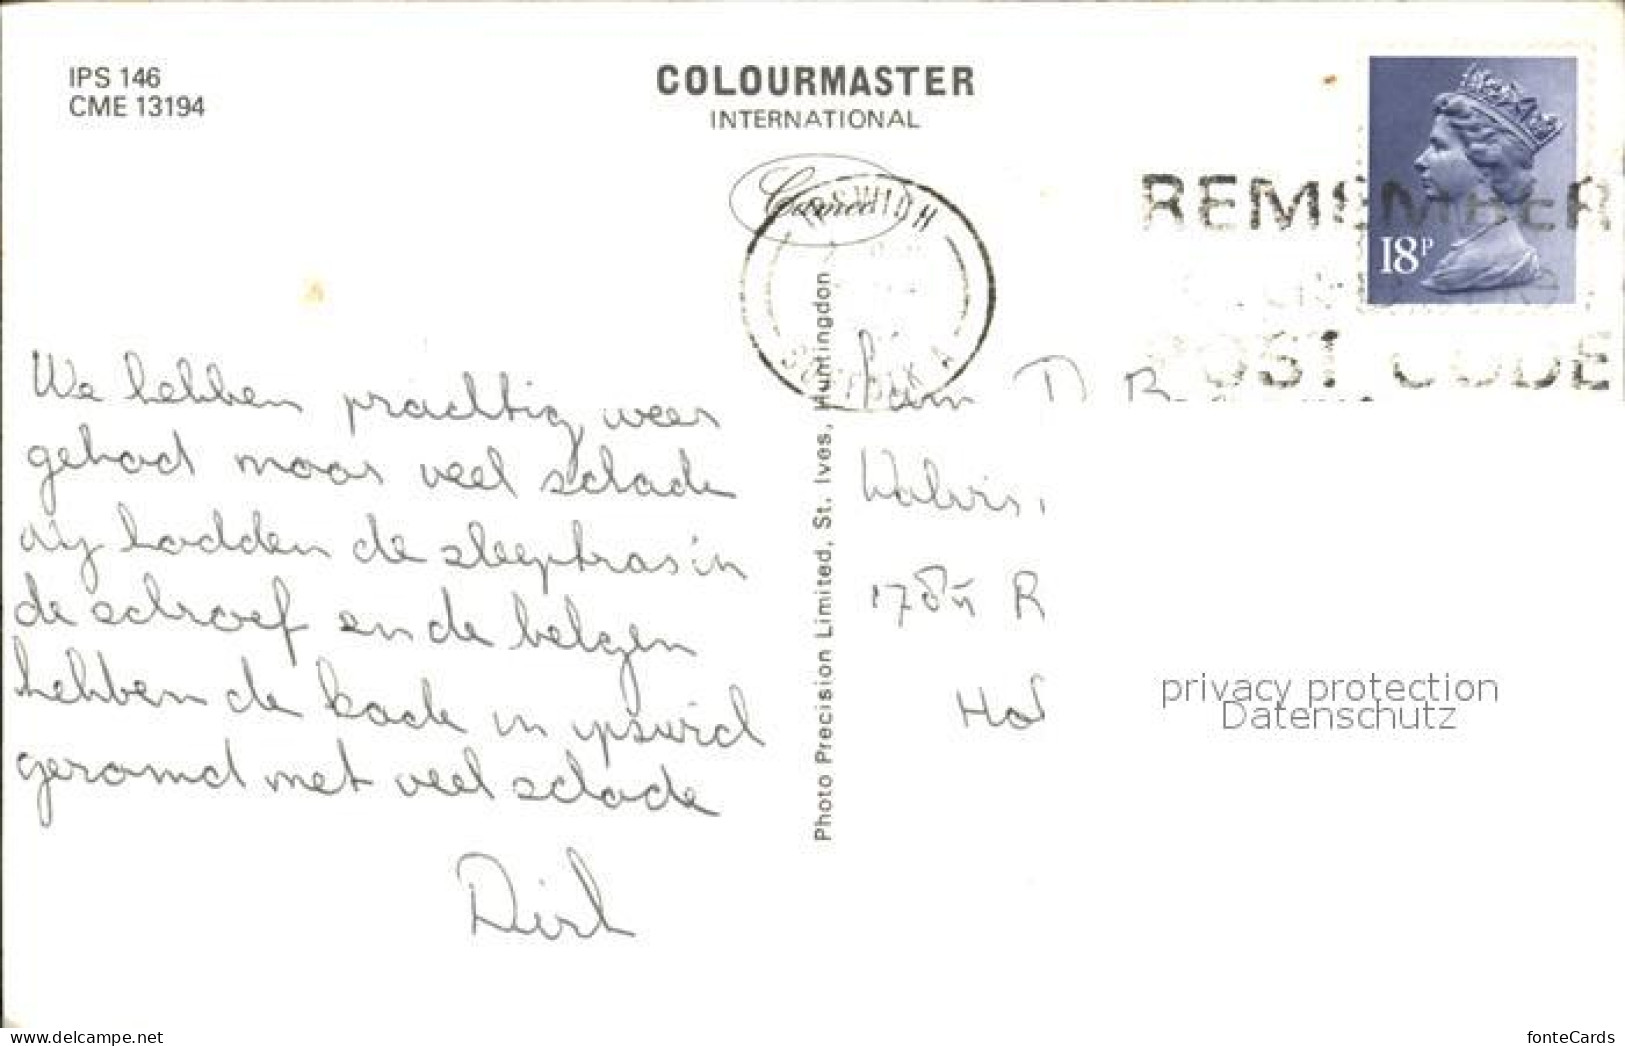 IPS 146
CME 13194
COLOURMASTER
INTERNATIONAL
REMEMBER
POST CODE
IPSWICH
SUFFOLK A
18P
We hebben prachtig weer
gehad maar veel schade
wij hadden de sleeptros in
de schroef en de belgen
hebben de kade in ipswich
geramd met veel schade
Dirk
Photo Precision Limited, St. Ives, Huntingdon
Fam D B
Walvis
178 R
Hol
privacy protection
Datenschutz
www.delcampe.net
fonteCards